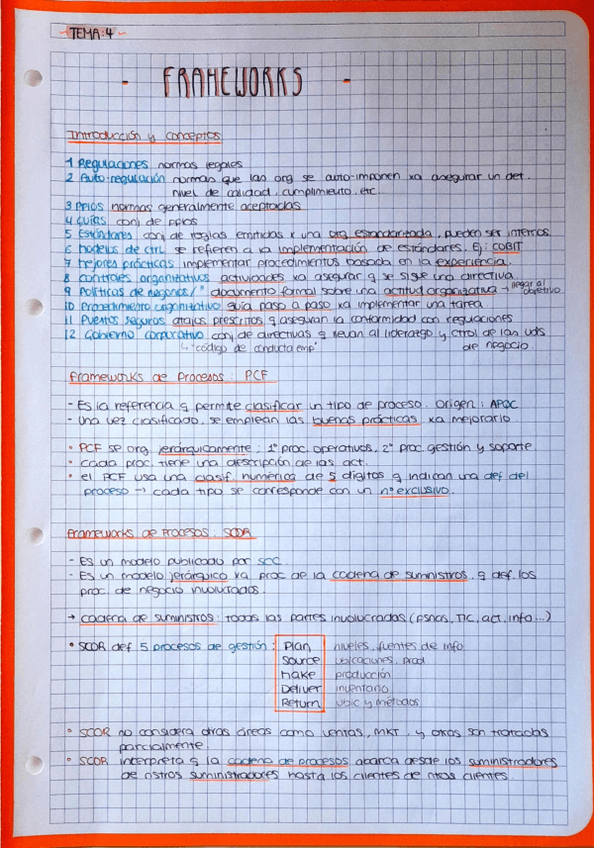 TEMA: 4
- FRAMEWORKS -
Introducción y conceptos
1 Regulaciones normas legales
2 Auto-regulación normas que las org se auto-imponen xa asegurar un det.
nivel de calidad, cumplimiento, etc.
3 PPIOS normas generalmente aceptadas
4 Guías conj de ppios
5 Estándares conj de reglas emitidas x una org estandarizada, pueden ser internos
6 Modelos de ctrl se refieren a la implementación de estándares. Ej: COBIT
7 Mejores prácticas implementar procedimientos basada en la experiencia
8 Controles organizativos actividades xa asegurar q se sigue una directiva
9 Políticas de negocio/" documento formal sobre una actitud organizativa → llegar al objetivo
10 Procedimiento organizativo guía paso a paso xa implementar una tarea
11 Puertos seguros atajos prescritos q aseguran la conformidad con regulaciones
12 Gobierno corporativo conj de directivas q llevan al liderazgo y ctrol de las uds
↳ "código de conducta emp" de negocio.
Frameworks de Procesos: PCF
- Es la referencia q permite clasificar un tipo de proceso. Origen: APQC
- Una vez clasificado, se emplean las buenas prácticas xa mejorarlo
• PCF se org. jerárquicamente; 1º proc. operativos, 2º proc. gestión y soporte
• cada proc. tiene una descripción de las act.
• el PCF usa una clasif. numérica de 5 dígitos q indican una def del
proceso → cada tipo se corresponde con un nº exclusivo.
Frameworks de Procesos. SCOR
- Es un modelo publicado por SCC
- Es un modelo jerárquico xa proc de la cadena de suministros, q def. los
proc. de negocio involucrados.
→ cadena de suministros: todas las partes involucradas (psnas, TIC, act, info...)
• SCOR def 5 procesos de gestión: Plan niveles, fuentes de info
Source ubicaciones, prod
Make producción
Deliver inventario
Return ubic y métodos
• SCOR no considera otras áreas como ventas, MKT, y otras son tratadas
parcialmente.
• SCOR interpreta q la cadena de procesos abarca desde los suministradores
de nstros suministradores hasta los clientes de ntros clientes.